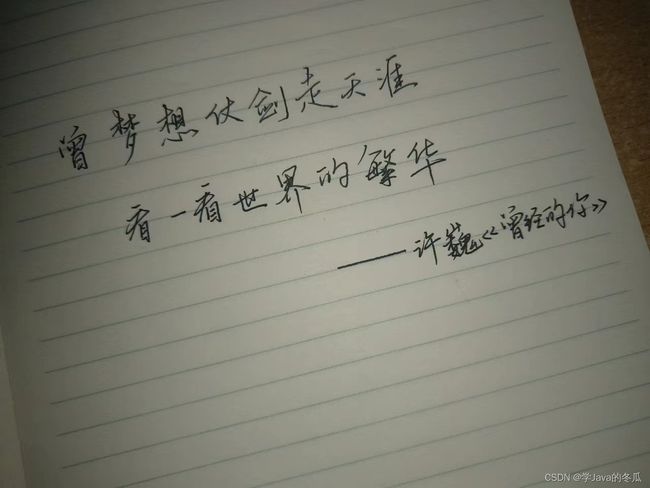 曾梦想仗剑走天涯
看一看世界的繁华
——许巍《曾经的你》
CSDN @学Java的冬瓜